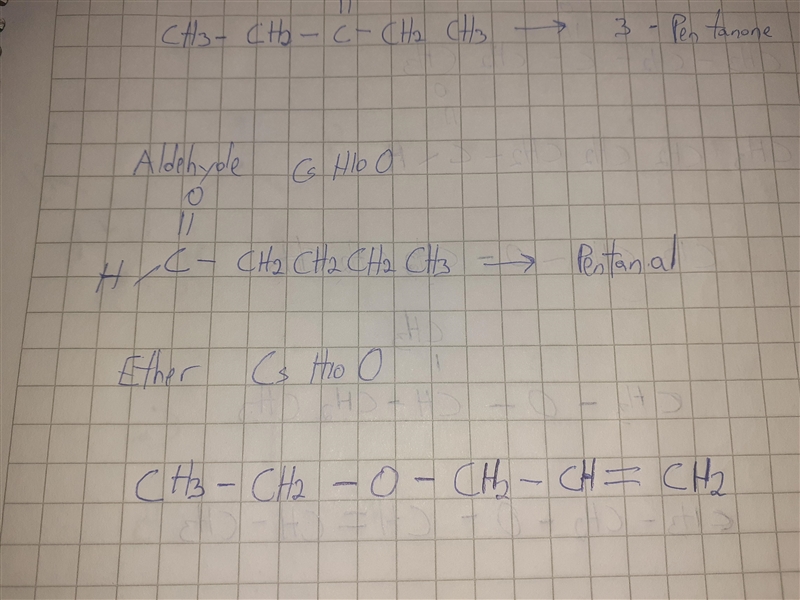 CH3 - CH2 - C - CH2 CH3 → 3 - Pentanone
Aldehyde C5 H10 O
O
||
H / C - CH2 CH2 CH2 CH3 → Pentanal
Ether C5 H10 O
CH3 - CH2 - O - CH2 - CH = CH2